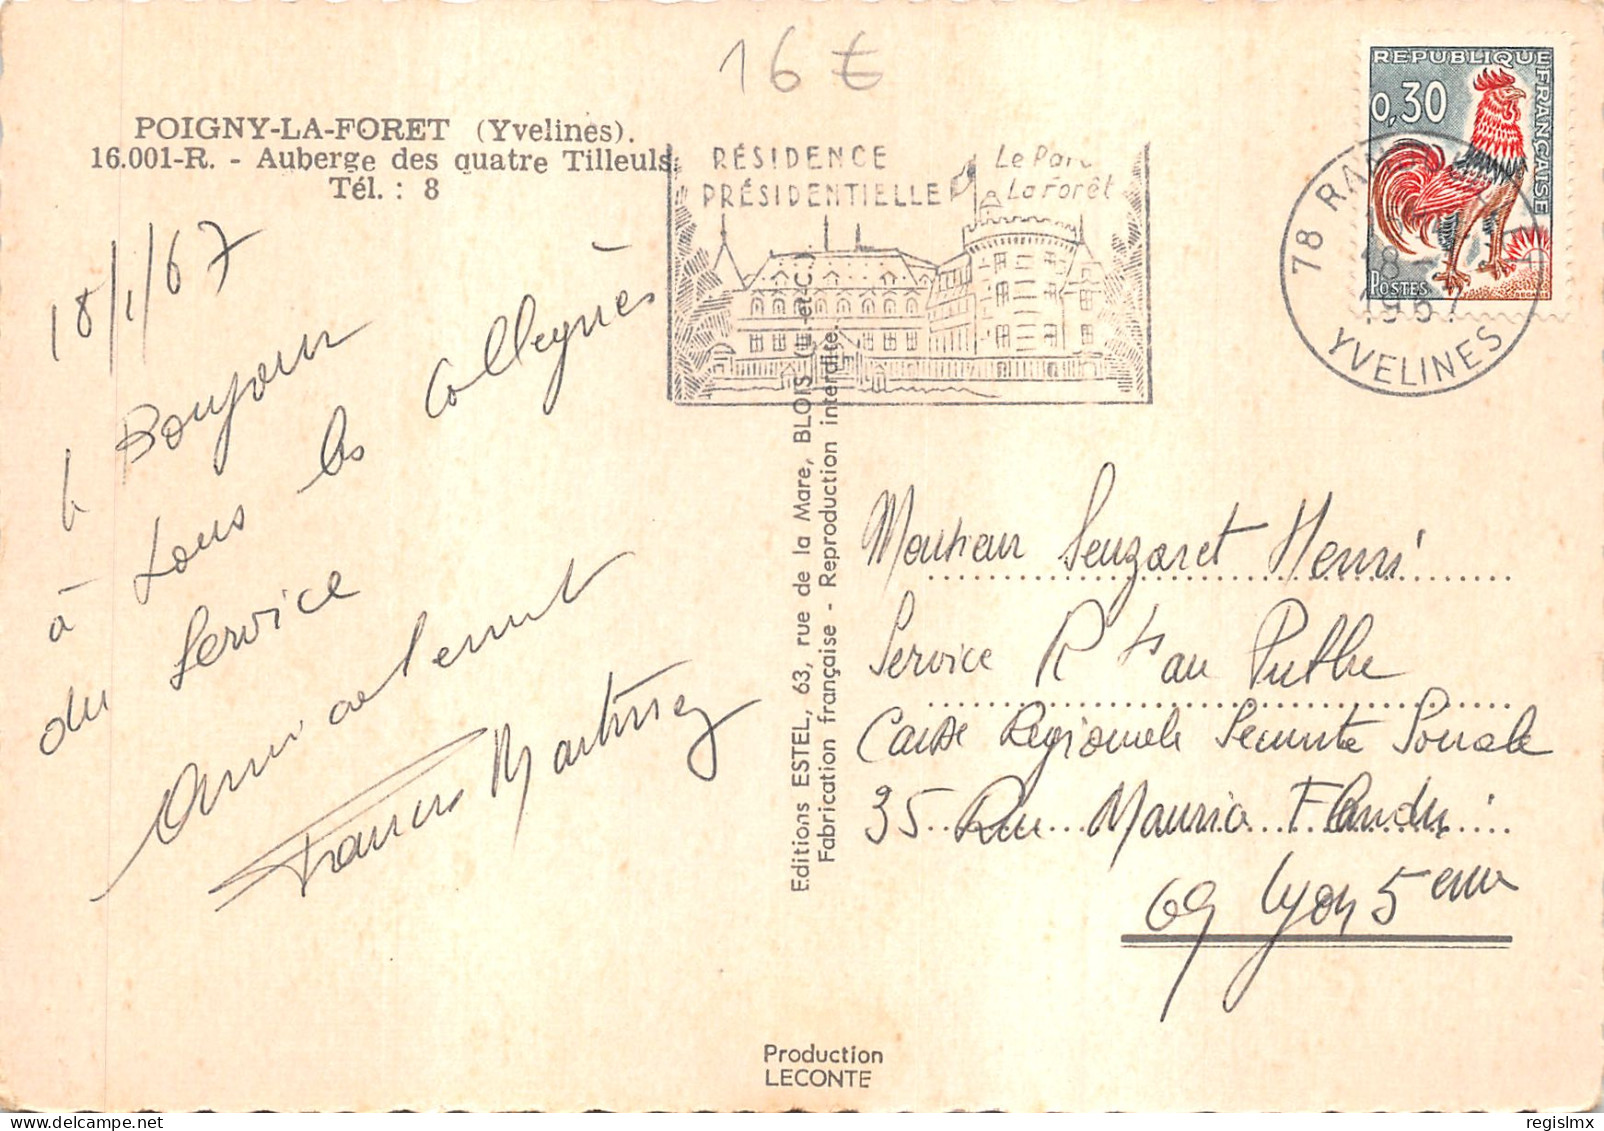 16 €
POIGNY-LA-FORET (Yvelines).
16.001-R. - Auberge des quatre Tilleuls.
Tél. : 8
RÉSIDENCE
PRÉSIDENTIELLE
Le Parc
La Forêt
REPUBLIQUE FRANÇAISE
0,30
POSTES
78 RAN
18 -
1967
YVELINES
18/1/67
Bonjour
à tous les collègues
du service
Amicalement
Francis Martinez
Editions ESTEL, 63, rue de la Mare, BLOIS (L.-et-C.)
Fabrication française - Reproduction interdite.
Monsieur Senzaret Henri
Service R au Public
Caisse Regionale Securite Sociale
35 Rue Maurice Flandin
69 Lyon 5eme
Production
LECONTE
www.delcampe.net
regislmx